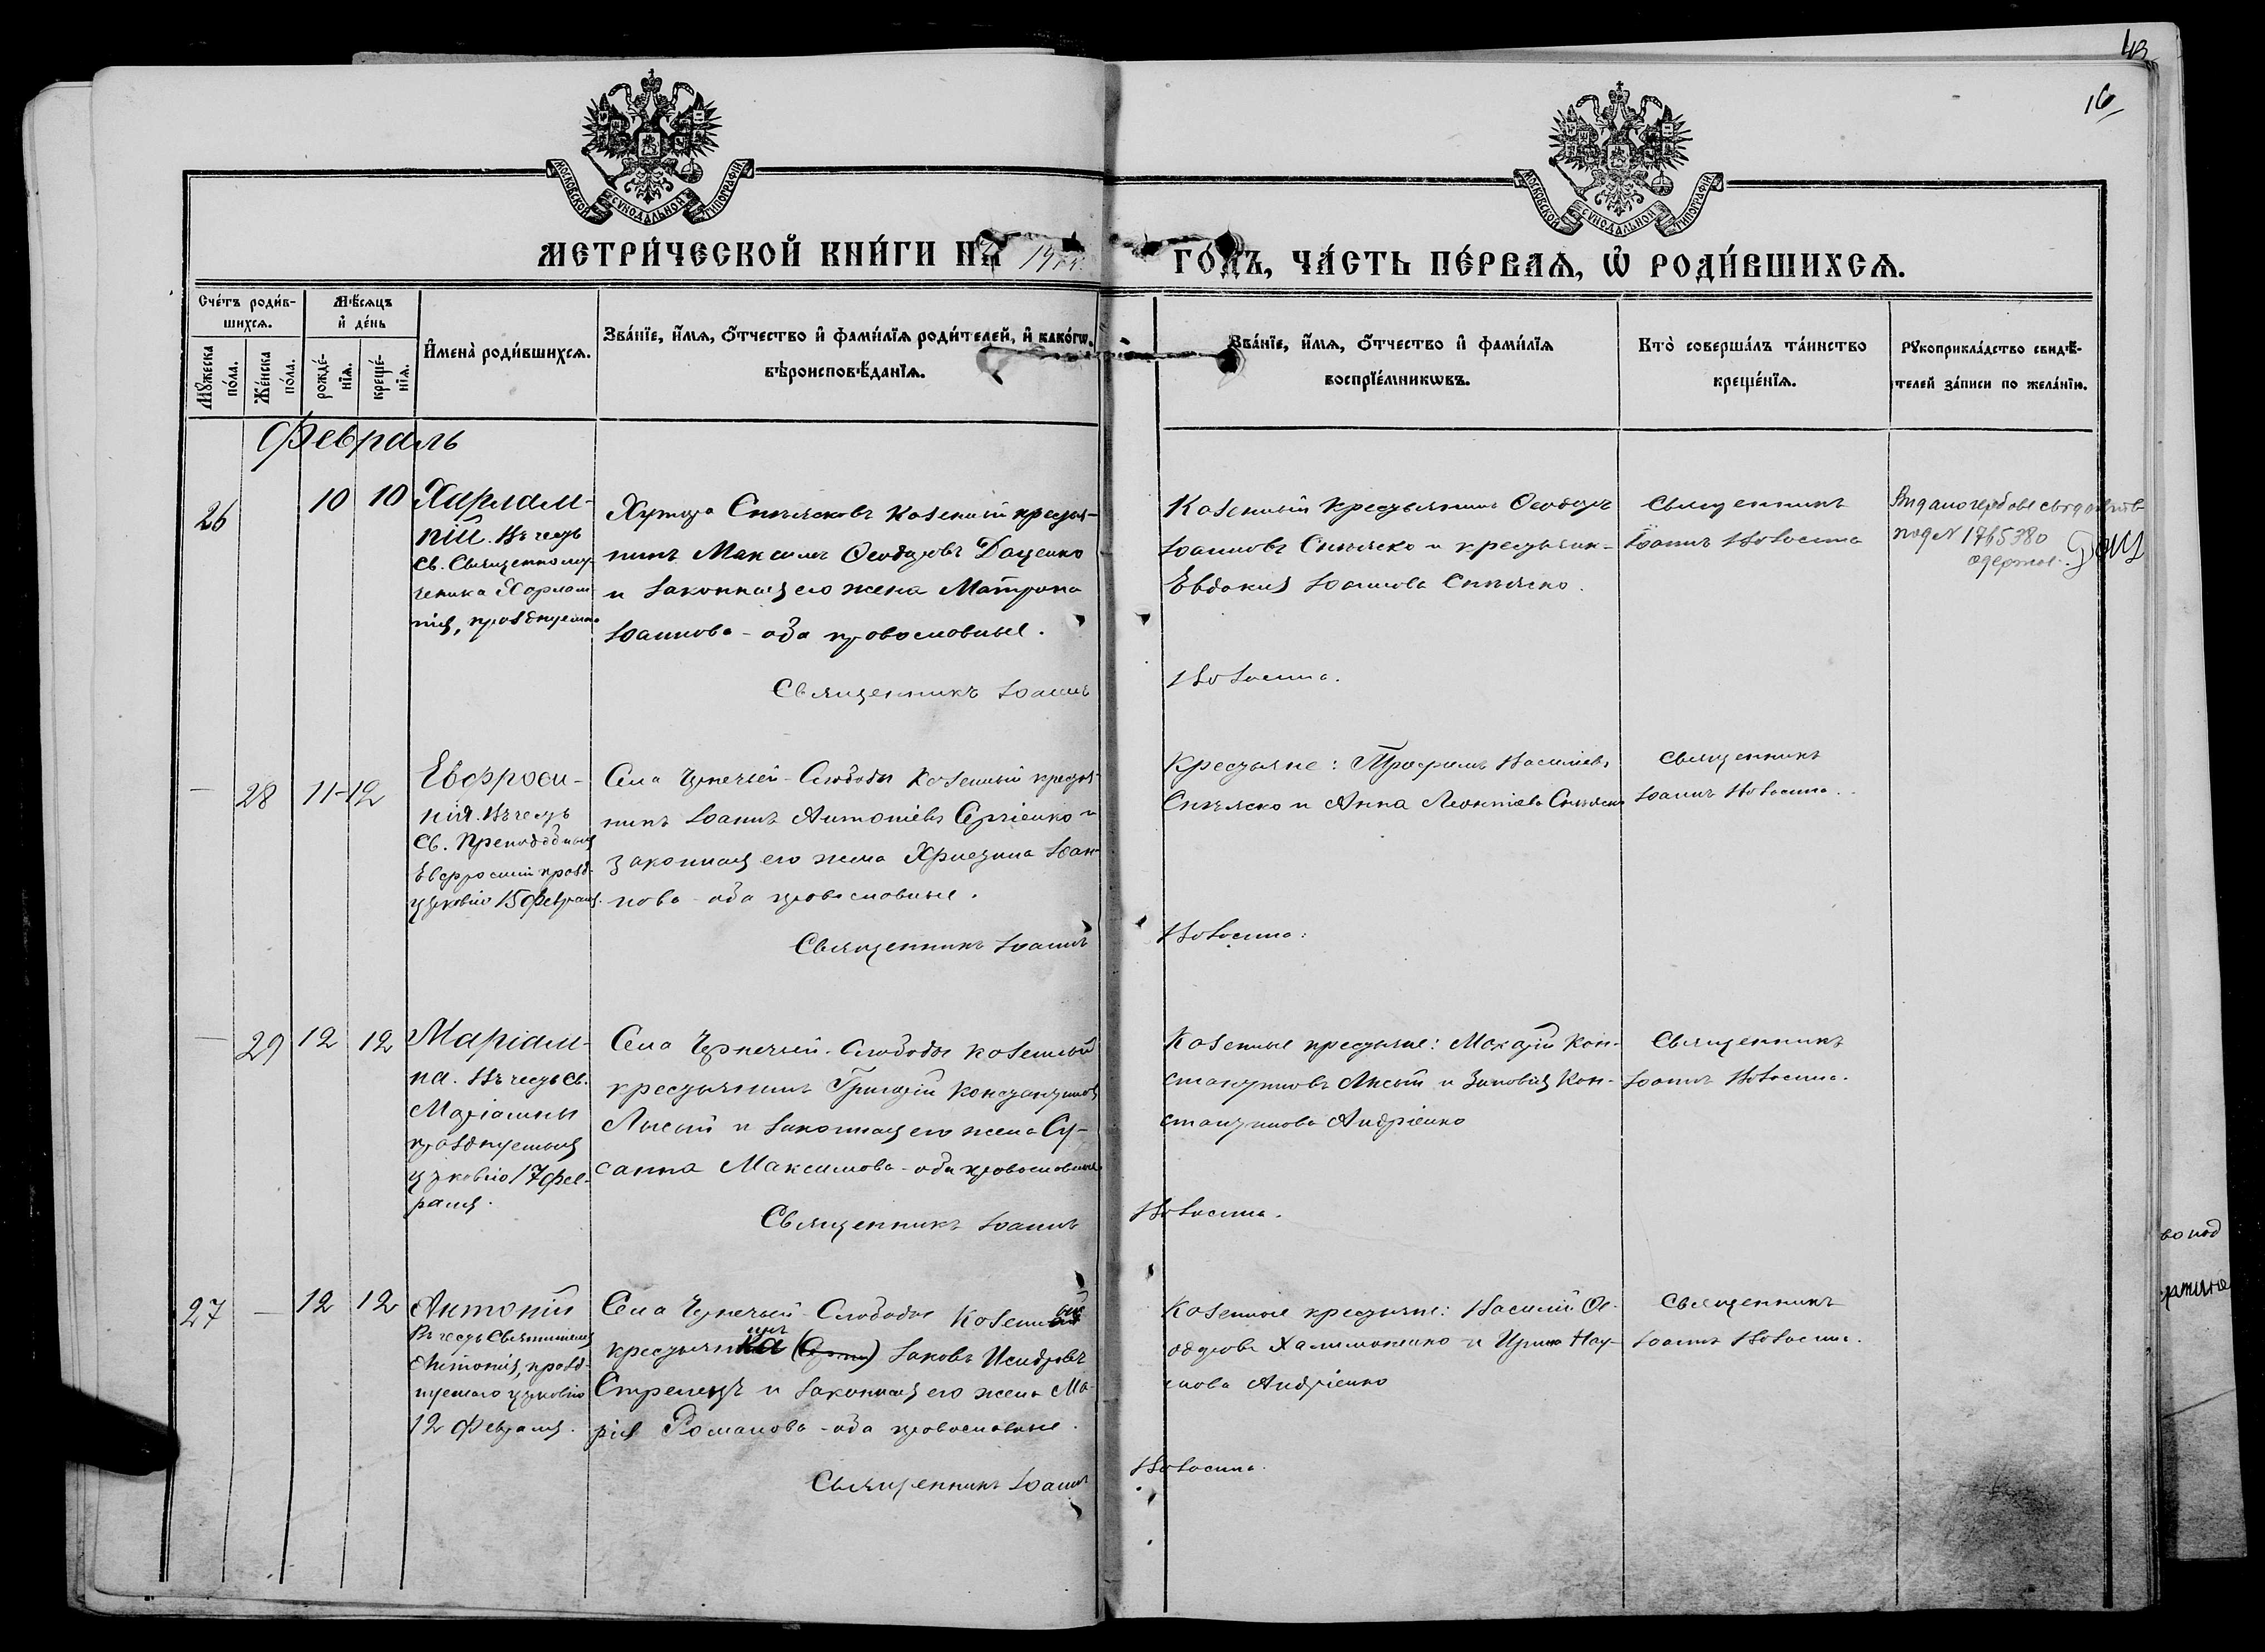 43
16
МОСКОВСКОЙ СѴНОДАЛЬНОЙ ТИПОГРАФІИ
МОСКОВСКОЙ СѴНОДАЛЬНОЙ ТИПОГРАФІИ
МЕТРИ́ЧЕСКОЙ КНИ́ГИ НА 19
ГО́ДЪ, ЧА́СТЬ ПЕ́РВАѦ, Ѡ҆ РОДИ́ВШИХСѦ.
Сче́тъ роди́в-
шихсѧ.
Мꙋ́жеска по́ла.
Же́нска по́ла.
Мѣ́сѧцъ
и҆ де́нь
рожде́-
нїѧ.
креще́-
нїѧ.
И҆мена̀ роди́вшихсѧ.
Зва́нїе, и҆́мѧ, ѻ҆́тчество и҆ фами́лїѧ роди́телей, и҆ како́гѡ
вѣроисповѣ́данїѧ.
Зва́нїе, и҆́мѧ, ѻ҆́тчество и҆ фами́лїѧ
воспрїе́мникѡвъ.
Кто̀ соверша́лъ та́инство
креще́нїѧ.
Рꙋкоприкла́дство свидѣ́-
телей за́писи по жела́нїю.
Февраль
26
10 10
Харлам-
пій. Въ честь
Св. Священному-
ченика Харлам-
пія, празднуемаго
Хутора Спъяковъ казенный крестья-
нинъ Максимъ Ѳеодоровъ Даценко
и законная его жена Матрона
Іоаннова - оба православные.
Священникъ Іоаннъ
Казенный крестьянинъ Ѳеодоръ
Іоанновъ и крестьянк-
Евдокія Іоаннова
Священникъ
Іоаннъ
Выдано
под N 176538
одержал.
— 28 11 12
Евфроси-
нія. Въ честь
Св. Преподобныя
Евфросиніи празд.
церковію 15 февраля.
Села Чернечьей-Слободы казенный крестья-
нинъ Іоаннъ Антоніевъ Сергіенко и
законная его жена Христина Іоан-
нова - оба православные.
Священникъ Іоаннъ
Крестьяне: Трофимъ Василіевъ
и Анна Леонтіева
Священникъ
Іоаннъ
— 29 12 12
Маріам-
на. Въ честь Св.
Маріамны
празднуемыя
церковію 17 фев-
раля.
Села Чернечьей-Слободы казенный
крестьянинъ Григорій Константиновъ
Лысый и законная его жена Су-
санна Максимова - оба православные
Священникъ Іоаннъ
Казенные крестьяне: Макарій Кон-
стантиновъ Лысый и Зиновія Кон-
стантинова Андріенко
Священникъ
Іоаннъ
27 — 12 12
Антоній
Въ честь Святителя
Антонія, празд-
нуемаго церковію
12 Февраля.
Села Чернечьей-Слободы казенный
крестьянинъ Іаковъ Исидоровъ
Стрелецъ и законная его жена Ма-
рія Романова - оба православные.
Священникъ Іоаннъ
Казенные крестьяне: Василій Ѳе-
одоровъ Халимоненко и Ирина Нау-
мова Андріенко
Священникъ
Іоаннъ